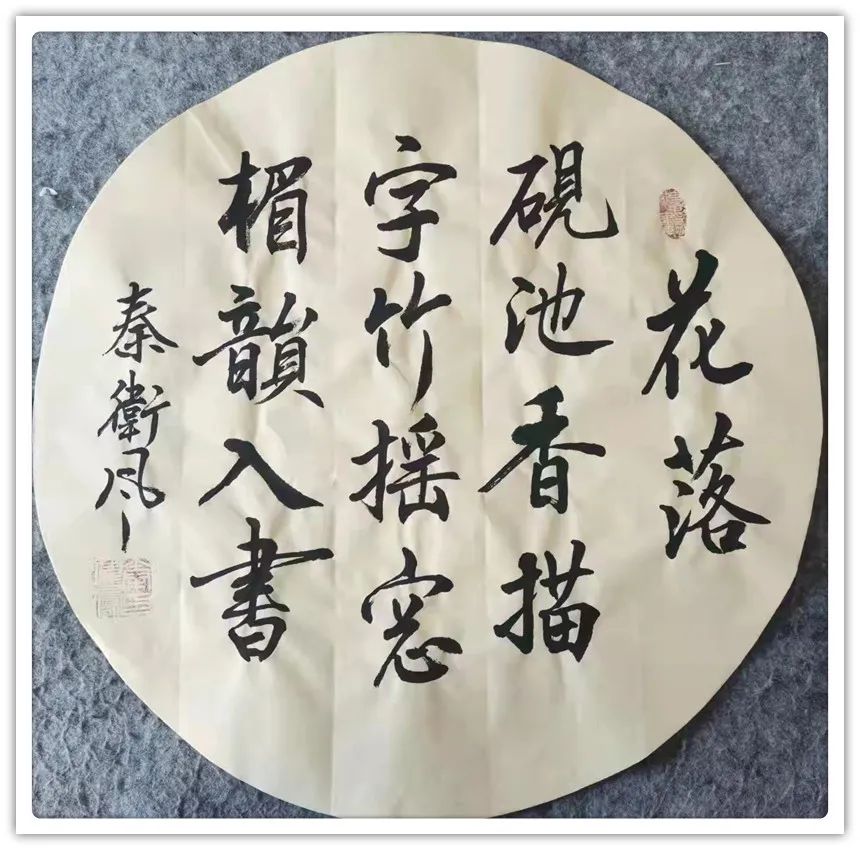 花落
硯池香描
字竹摇窓
楣韻入書
秦衛风